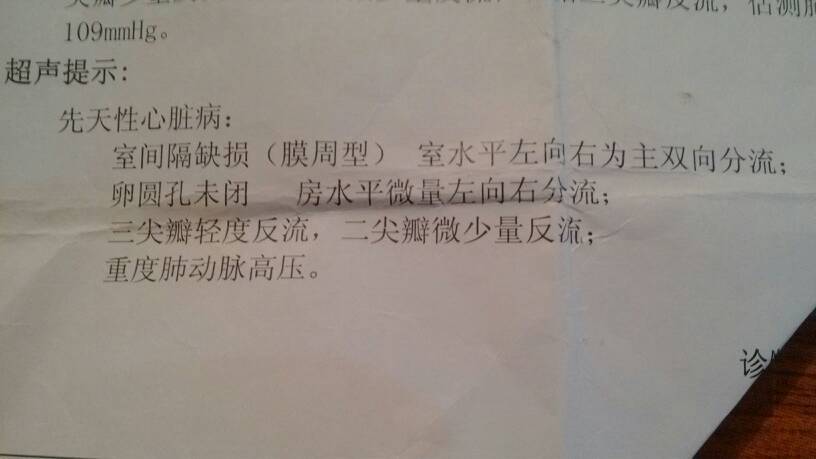 109mmHg。
超声提示:
先天性心脏病：
室间隔缺损（膜周型） 室水平左向右为主双向分流；
卵圆孔未闭 房水平微量左向右分流；
三尖瓣轻度反流，二尖瓣微少量反流；
重度肺动脉高压。
诊